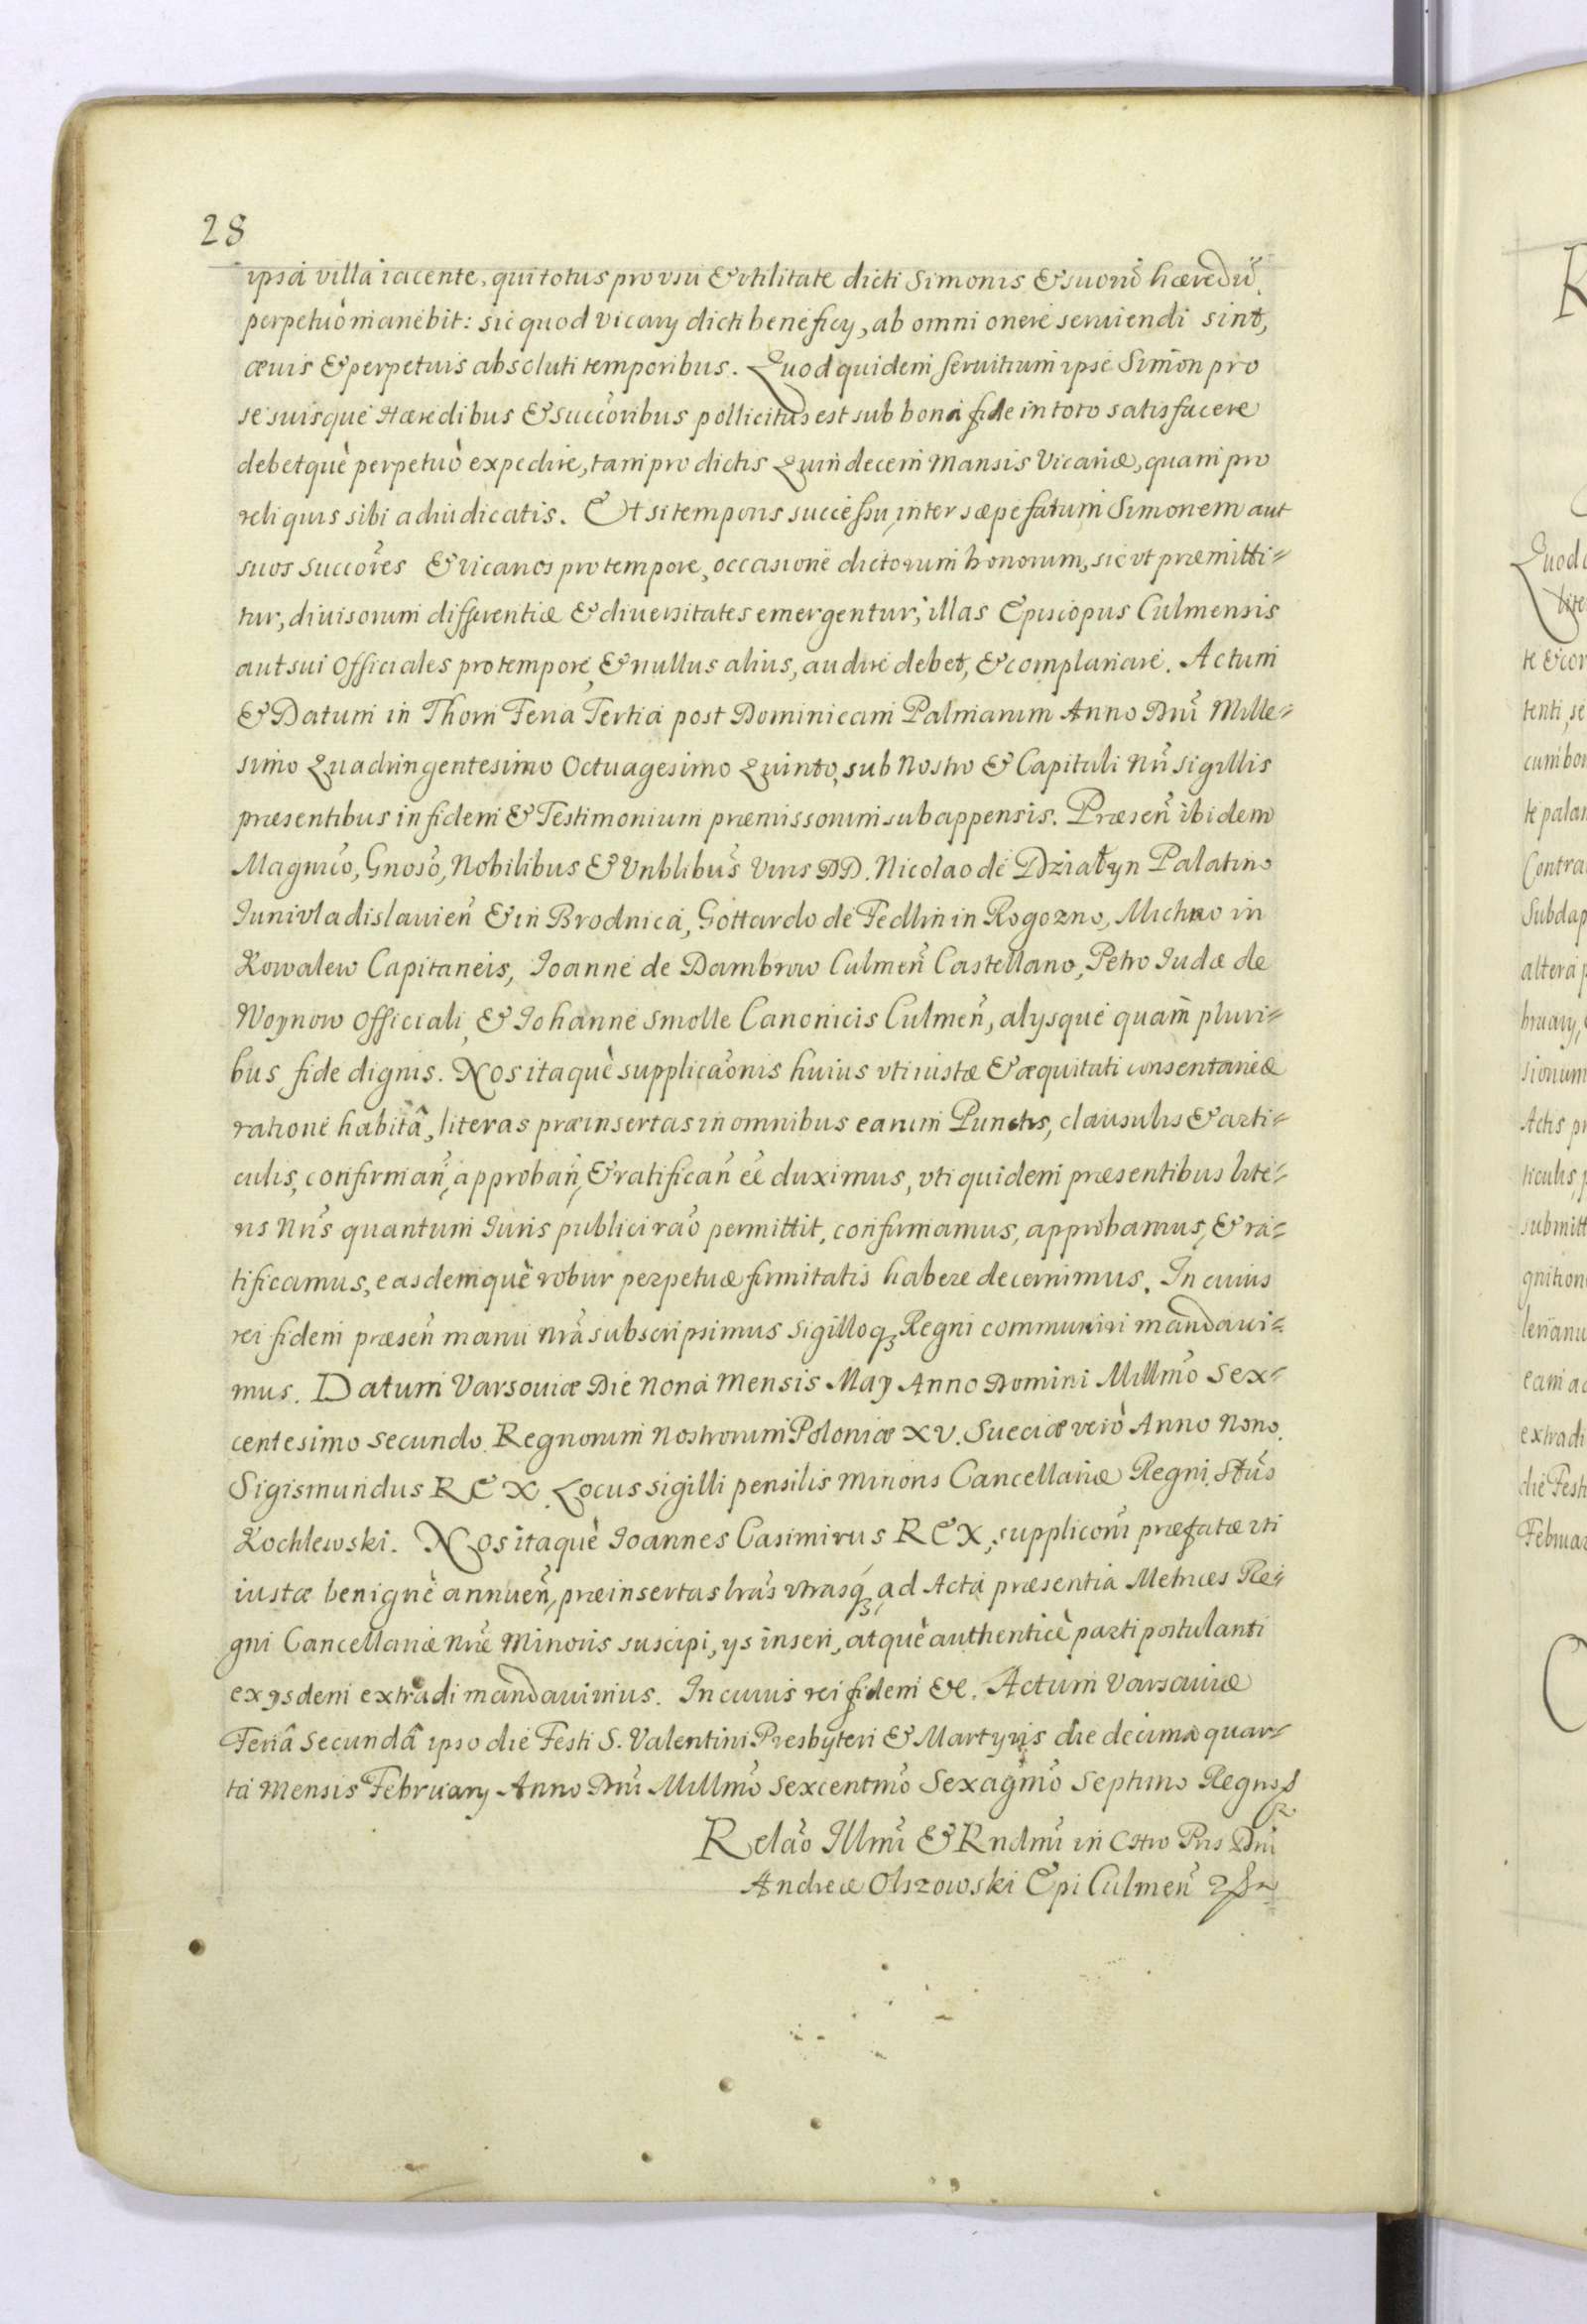 28
ipsa villa iacente, qui totus pro vsu & vtilitate dicti Simonis & suorũ hæredũ,
perpetuò manebit: sic quod vicary dicti beneficy, ab omni onere seruiendi sint,
æuis & perpetuis absoluti temporibus. Quod quidem seruitium ipse Simon pro
se suisque Hæredibus & succõribus pollicitus est sub bona fide in toto satisfacere
debetquè perpetuò expedire, tam pro dictis Quindecem Mansis Vicariæ, quam pro
reliquis sibi adiudicatis. Et si temporis successu, inter sæpefatum Simonem aut
suos Succõres & vicarios pro tempore, occasione dictorum bonorum, sic vt præmitti=
tur, diuisorum differentiæ & diuersitates emergentur, illas Episcopus Culmensis
aut sui Officiales pro tempore, & nullus alius, audire debet, & complanare. Actum
& Datum in Thorn Feria Tertia post Dominicam Palmarum Anno Dnĩ Mille=
simo Quadringentesimo Octuagesimo Quinto, sub Nostro & Capituli Nrĩ sigillis
præsentibus in fidem & Testimonium præmissorum subappensis. Præseñ ibidem
Magnicõ, Gnosõ, Nobilibus & Vnblibũs Viris DD. Nicolao de Dziatyn Palatino
Junivladislauieñ & in Brodnica, Gottardo de Fedlin in Rogozno, Michno in
Kowalew Capitaneis, Joanne de Dambrow Culmeñ Castellano, Petro Judæ de
Woynow Officiali, & Johanne Smolle Canonicis Culmeñ, alysque quam̃ pluri=
bus fide dignis. Nos itaquè supplicaõnis huius vti iustæ & æquitati consentaneæ
ratione habitâ, literas præinsertas in omnibus earum Punctis, clausulis & arti=
culis, confirmañ, approbañ, & ratificañ eẽ duximus, vti quidem præsentibus lite=
ris Nrĩs quantum Juris publici raõ permittit, confirmamus, approbamus, & ra=
tificamus, easdemquè robur perpetuæ firmitatis habere decernimus. In cuius
rei fidem præseñ manu nrã subscripsimus Sigilloqȝ Regni communiri mandaui=
mus. Datum Varsouiæ Die Nona Mensis May Anno Domini Millmõ Sex=
centesimo Secundo. Regnorum Nostrorum Poloniæ XV. Sueciæ verò Anno Nono.
Sigismundus REX. Locus sigilli pensilis minoris Cancellariæ Regni. Stũs
Kochlewski. Nos itaquè Joannes Casimirus REX, suppliconĩ præfatæ vti
iustæ benignè annueñ, præinsertas lrãs vtrasqȝ, ad Acta præsentia Metrices Re=
gni Cancellariæ Nrẽ Minoris suscipi, ys inseri, atquè authenticè parti postulanti
ex ysdem extradi mandauimus. In cuius rei fidem &c. Actum Varsauiæ
Feriâ Secundâ ipso die Festi S. Valentini Presbyteri & Martyris die decima quar=
ta Mensis February Anno Dnĩ Millmõ Sexcentmõ Sexagmõ Septimo
Relaõ Illmĩ & Rndmĩ in Chro Pris Dnĩ
Andreæ Olszowski Epi Culmeñ